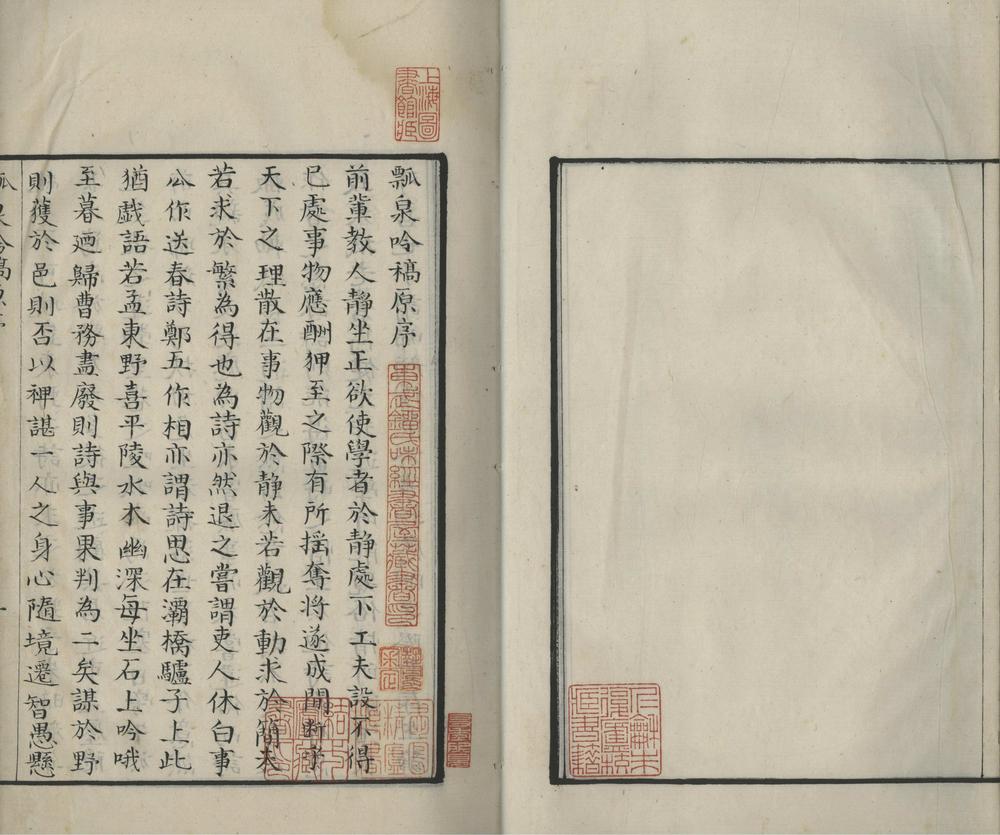 瓢泉吟稿原序
前輩教人靜坐正欲使學者於靜處下工夫設不得
已處事物應酬狎至之際有所揺奪將遂成間斷乎
天下之理散在事物觀於靜未若觀於動求於簡未
若求於繁為得也為詩亦然退之嘗謂吏人休白事
公作送春詩鄭五作相亦謂詩思在灞橋驢子上此
猶戯語若孟東野喜平陵水木幽深每坐石上吟哦
至暮廼歸曹務盡廢則詩與事果判為二矣謀於野
則獲於邑則否以裨諶一人之身心隨境遷智愚懸
上海圖書館藏
東武鎦氏味經書屋藏書印